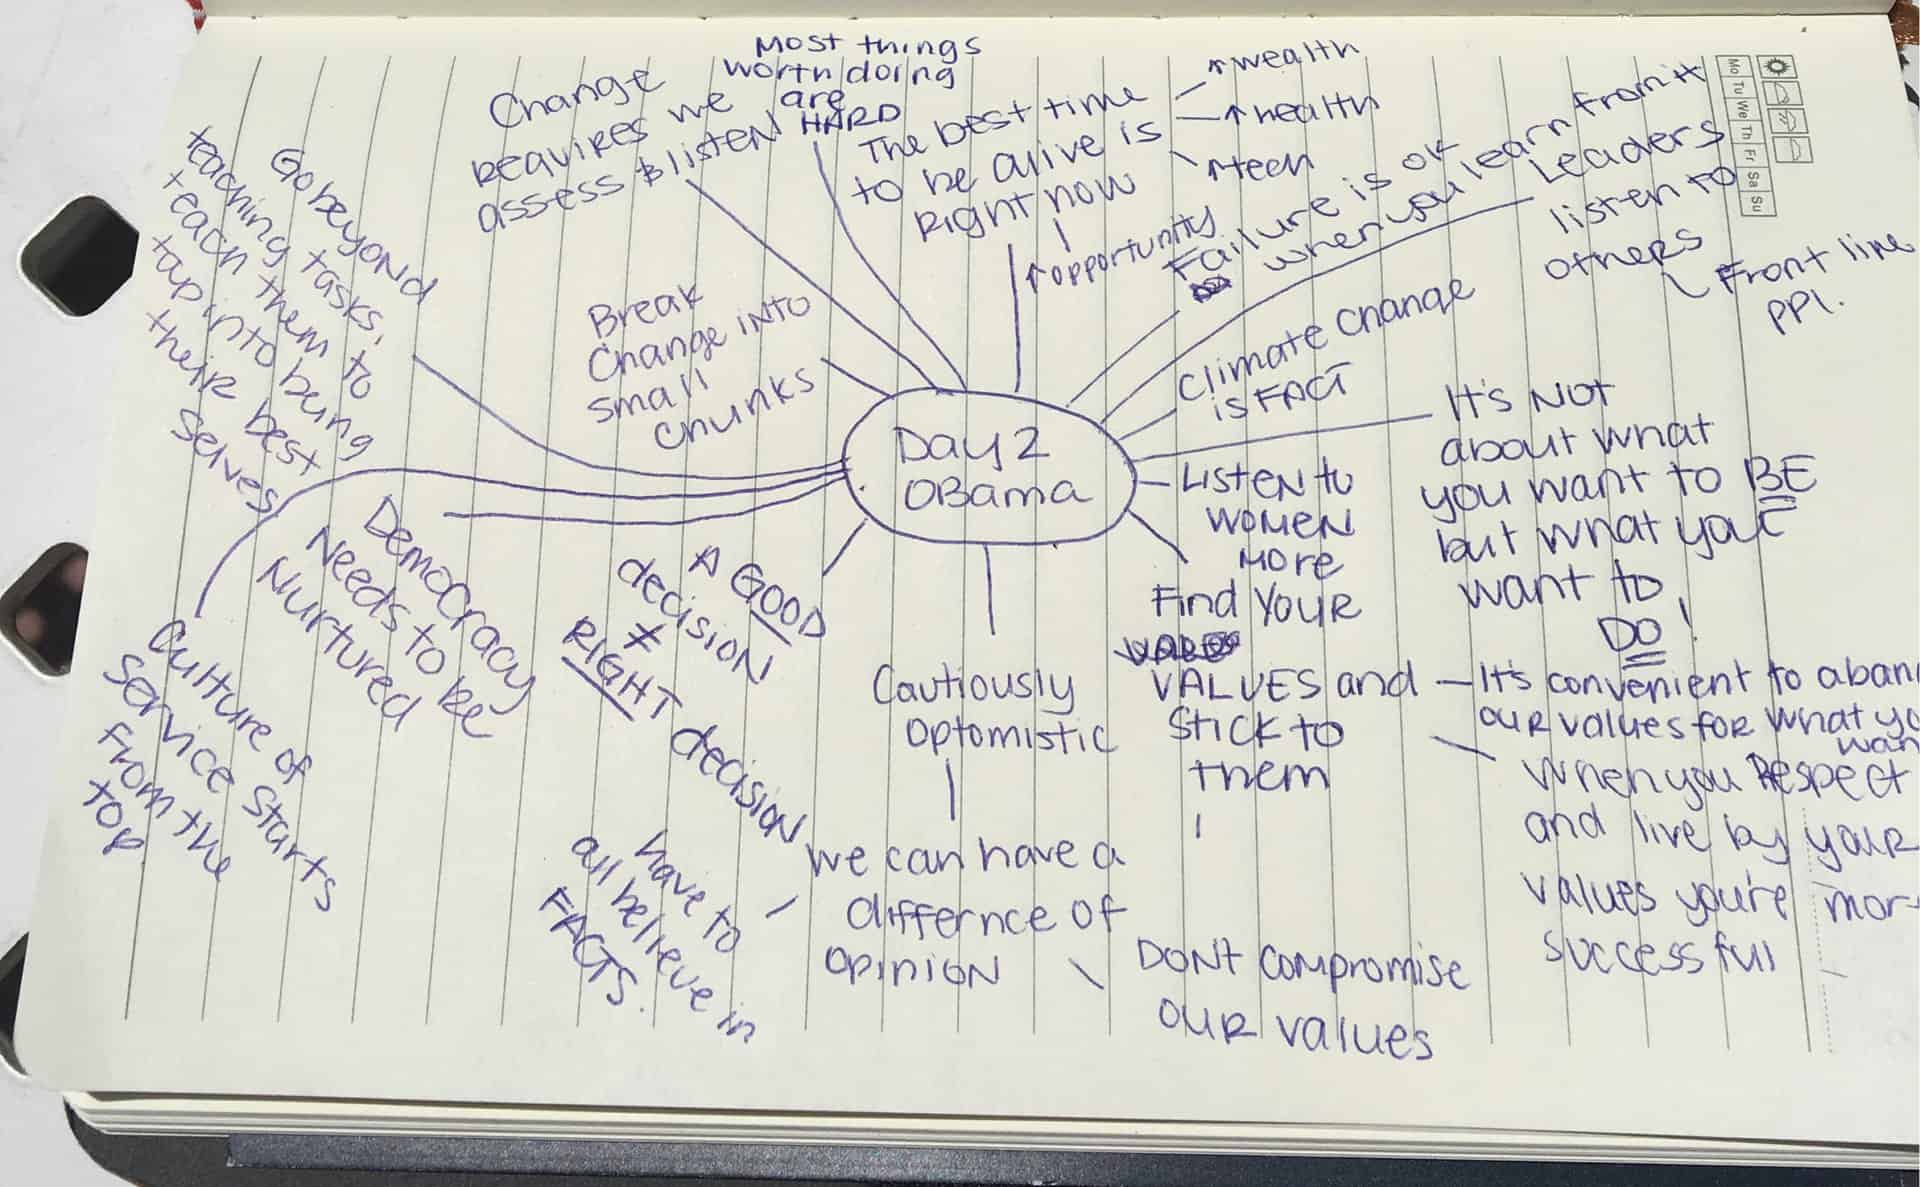 Day 2
OBama
Most things
worth doing
are
HARD
Change
Requires we
assess & listen
The best time
to be alive is
Right now
↑ wealth
↑ health
↑ teeh
↑ opportunity
Failure is ok
when you learn from it
Leaders
listen to
others
Front line
PPl.
Climate Change
is FACT
It's NOT
about what
you want to BE
but what you
want to
DO!
Listen to
WOMEN
MORE
Find YOUR
VALUES and
Stick to
them
It's convenient to aban
OUR values for what yo
wan
When you Respect
and live by your
values you're mor
successfull
DONT compromise
OUR values
Cautiously
Optomistic
We can have a
differnce of
opinion
have to
all believe in
FACTS.
A GOOD
decision
≠
RIGHT decision
Democracy
Needs to be
Nurtured
Culture of
Service starts
from the
top
Go beyond
teaching tasks,
teach them to
tap into being
their best
selves
Break
Change into
small
chunks
Mo Tu We Th Fr Sa Su